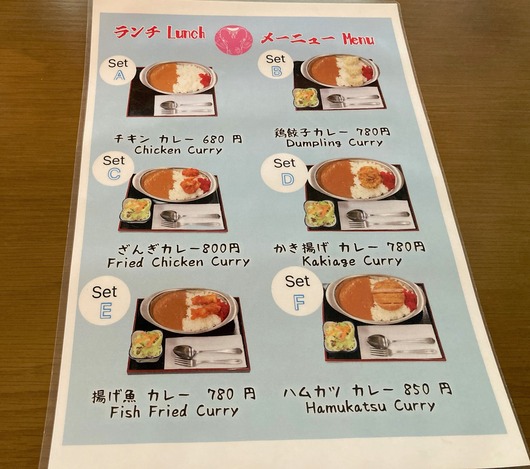 ランチ Lunch
メーニュー Menu
Set A
Set B
チキン カレー 680 円
Chicken Curry
鶏餃子カレー 780円
Dumpling Curry
Set C
Set D
ざんぎカレー800円
Fried Chicken Curry
かき揚げ カレー 780円
Kakiage Curry
Set E
Set F
揚げ魚 カレー 780 円
Fish Fried Curry
ハムカツ カレー 850 円
Hamukatsu Curry